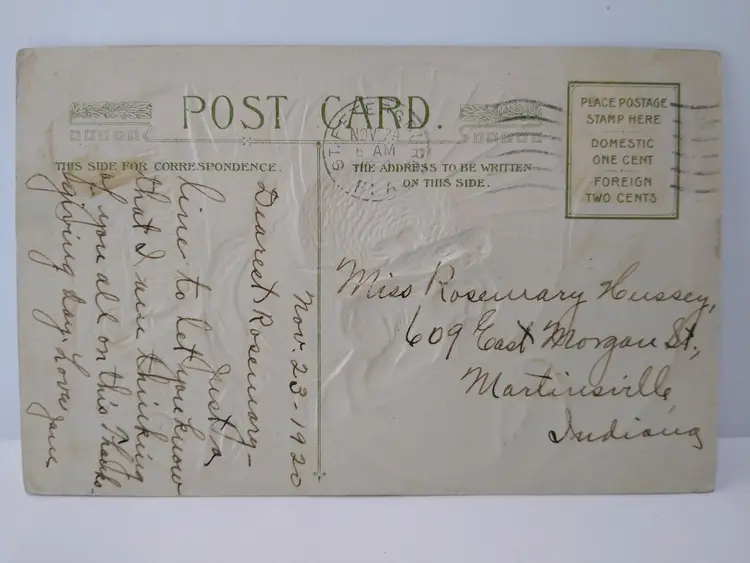 POST CARD.
THIS SIDE FOR CORRESPONDENCE.
THE ADDRESS TO BE WRITTEN
ON THIS SIDE.
PLACE POSTAGE
STAMP HERE
DOMESTIC
ONE CENT
FOREIGN
TWO CENTS
NOV 24
6 AM
FLA
Nov. 23-1920
Dearest Rosemary-
Just a
line to let you know
that I am thinking
of you all on this Thanks-
giving day. Love Jane
Miss Rosemary Hussey,
609 East Morgan St.,
Martinsville
Indiana